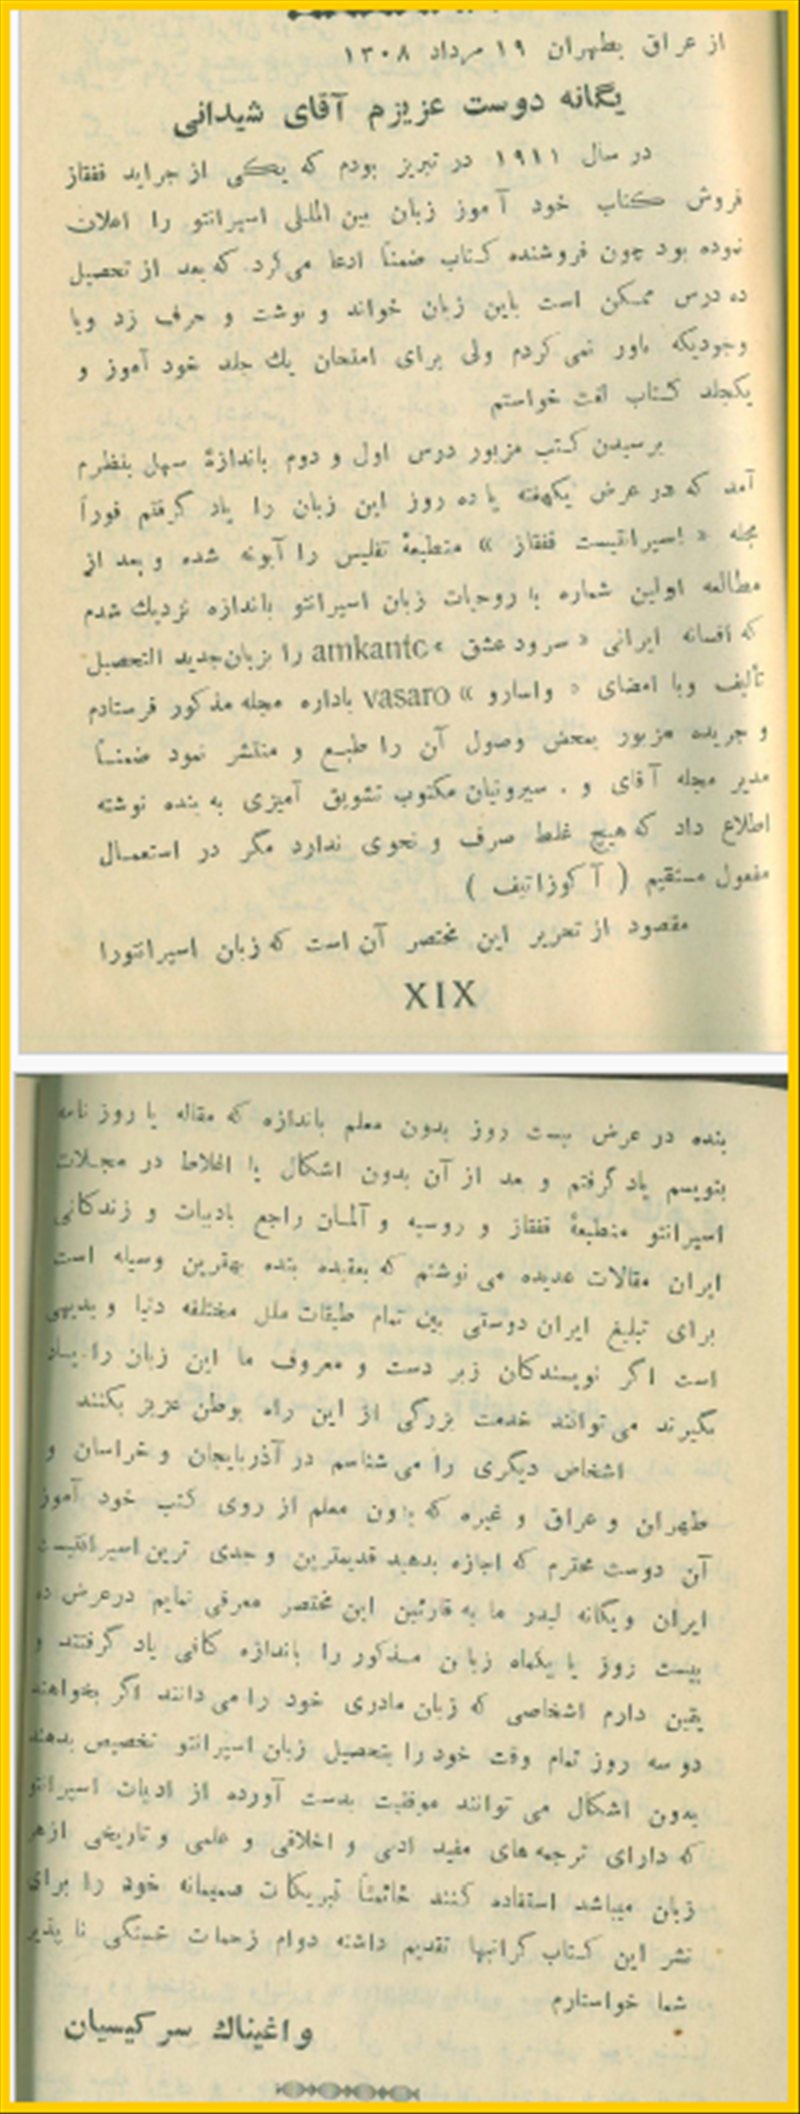 از عراق بطهران ۱۹ مرداد ۱۳۰۸
یگانه دوست عزیزم آقای شیدانی
در سال ۱۹۱۱ در تبریز بودم که یکی از جراید قفقاز
فروش کتاب خود آموز زبان بین المللی اسپرانتو را اعلان
نموده بود چون فروشنده کتاب ضمناً ادعا می‌کرد که بعد از تحصیل
ده درس ممکن است باین زبان خواند و نوشت و حرف زد وبا
وجودیکه باور نمی‌کردم ولی برای امتحان یك جلد خود آموز و
یکجلد کتاب لغت خواستم
برسیدن کتب مزبور درس اول و دوم باندازهٔ سهل بنظرم
آمد که در عرض یکهفته یا ده روز این زبان را یاد گرفتم فوراً
مجله « اسپرانتیست قفقاز » منطبعهٔ تفلیس را آبونه شده و بعد از
مطالعه اولین شماره با روحیات زبان اسپرانتو باندازه نزدیك شدم
که افسانه ایرانی « سرود عشق » amkanto را بزبان جدید التحصیل
تألیف وبا امضای « واسارو » vasaro باداره مجله مذکور فرستادم
و جریده مزبور بمحض وصول آن را طبع و منتشر نمود ضمنـاً
مدیر مجله آقای و . سیرونیان مکتوب تشویق آمیزی به بنده نوشته
اطلاع داد که هیچ غلط صرف و نحوی ندارد مگر در استعمـال
مفعول مستقیم ( آکوزاتیف )
مقصود از تحریر این مختصر آن است که زبان اسپرانتورا
XIX
بنده در عرض بیست روز بدون معلم باندازه که مقاله یا روز نامه
بنویسم یاد گرفتم و بعد از آن بدون اشکال یا اغلاط در مجلات
اسپرانتو منطبعهٔ قفقاز و روسیه و آلمـان راجع بادبیات و زندگانی
ایران مقالات عدیده می نوشتم که بعقیده بنده بهترین وسیله است
برای تبلیغ ایران دوستی بین تمام طبقات ملل مختلفه دنیا و بدیهی
است اگر نویسندگان زبر دست و معروف ما این زبان را یـاد
بگیرند می توانند خدمت بزرگی از این راه بوطن عزیز بکنند
اشخاص دیگری را می شناسم در آذربایجان و خراسان و
طهران و عراق و غیره که بدون معلم از روی کتب خود آموز
آن دوست محترم که اجازه بدهید قدیمترین و جدی ترین اسپرانتیست
ایران و یگانه لیدر ما به قارئین این مختصر معرفی نمایم درعرض ده
بیست روز یا یکماه زبان مـذکور را باندازه کافی یاد گرفتند و
یقین دارم اشخاصی که زبان مادری خود را می دانند اگر بخواهند
دو سه روز تمام وقت خود را بتحصیل زبان اسپرانتو تخصیص بدهند
بدون اشکال می توانند موفقیت بدست آورده از ادبیات اسپرانتو
که دارای ترجمه های مفید ادبی و اخلاقی و علمی و تاریخی ازهر
زبان میباشد استفاده کنند خاتمتاً تبریکات صمیمانه خود را برای
نشر این کتاب گرانبها تقدیم داشته دوام زحمات خستگی نا پذیر
شما خواستارم
واغیناك سرکیسیان